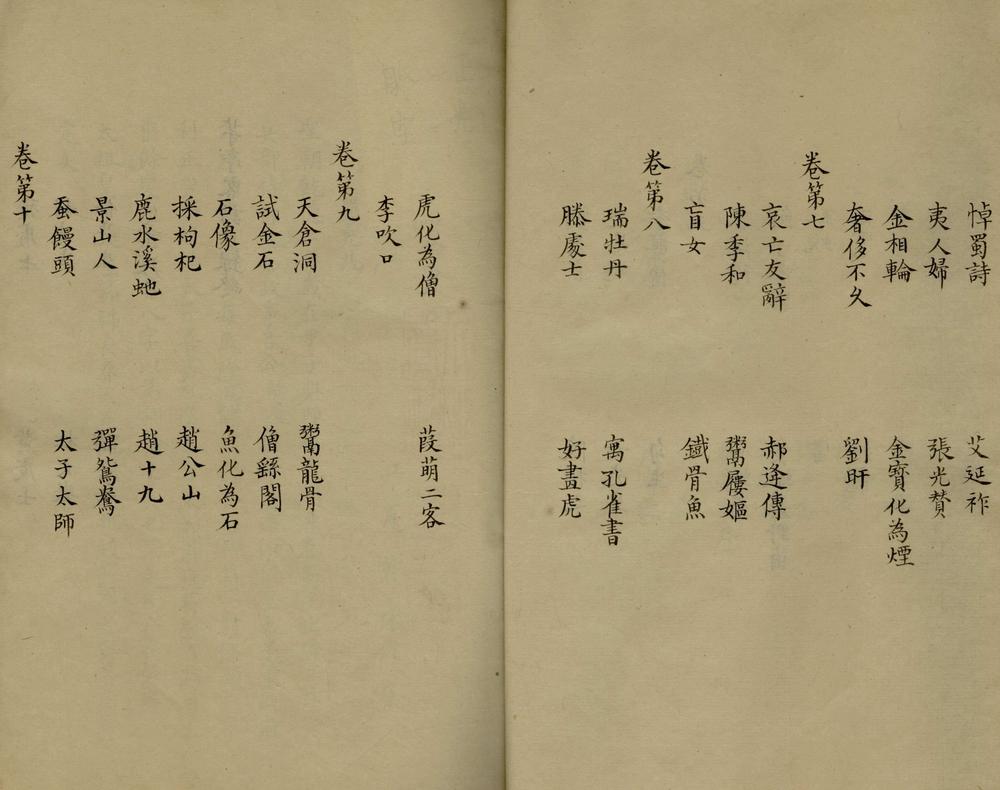 悼蜀詩　艾延祚
夷人婦　張光贊
金相輪　金寶化為煙
奢侈不久　劉旰
卷第七
哀亡友辭　郝逢傳
陳季和　鬻屨嫗
盲女　鐵骨魚
卷第八
瑞牡丹　寓孔雀書
滕處士　好畫虎
虎化為僧　葭萌二客
李吹口
卷第九
天倉洞　鬻龍骨
試金石　僧繇閣
石像　魚化為石
採枸杞　趙公山
鹿水溪虵　趙十九
景山人　彈鴛鴦
蚕饅頭　太子太師
卷第十